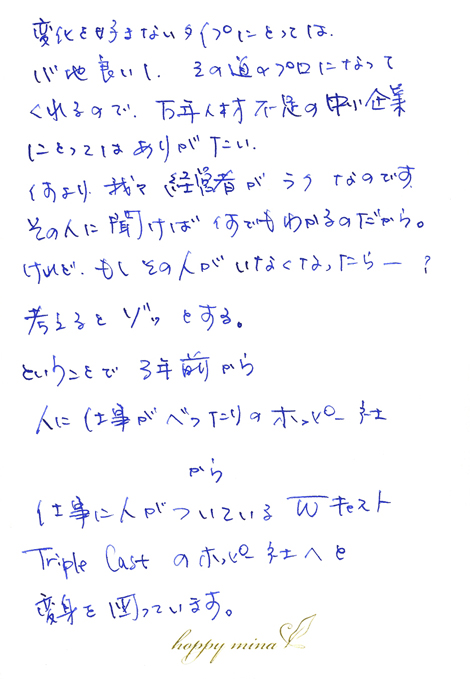 変化を好まないタイプにとっては、
心地良いし、その道のプロになって
くれるので、万年人材不足の中小企業
にとってはありがたい。
何より、我々経営者がラクなのです。
その人に聞けば何でもわかるのだから。
けれど、もしその人がいなくなったらー?
考えるとゾッとする。
ということで3年前から
人に仕事がべったりのホッピー社
から
仕事に人がついているWキャスト
Triple Castのホッピー社へと
変身を図っています。
hoppy mina